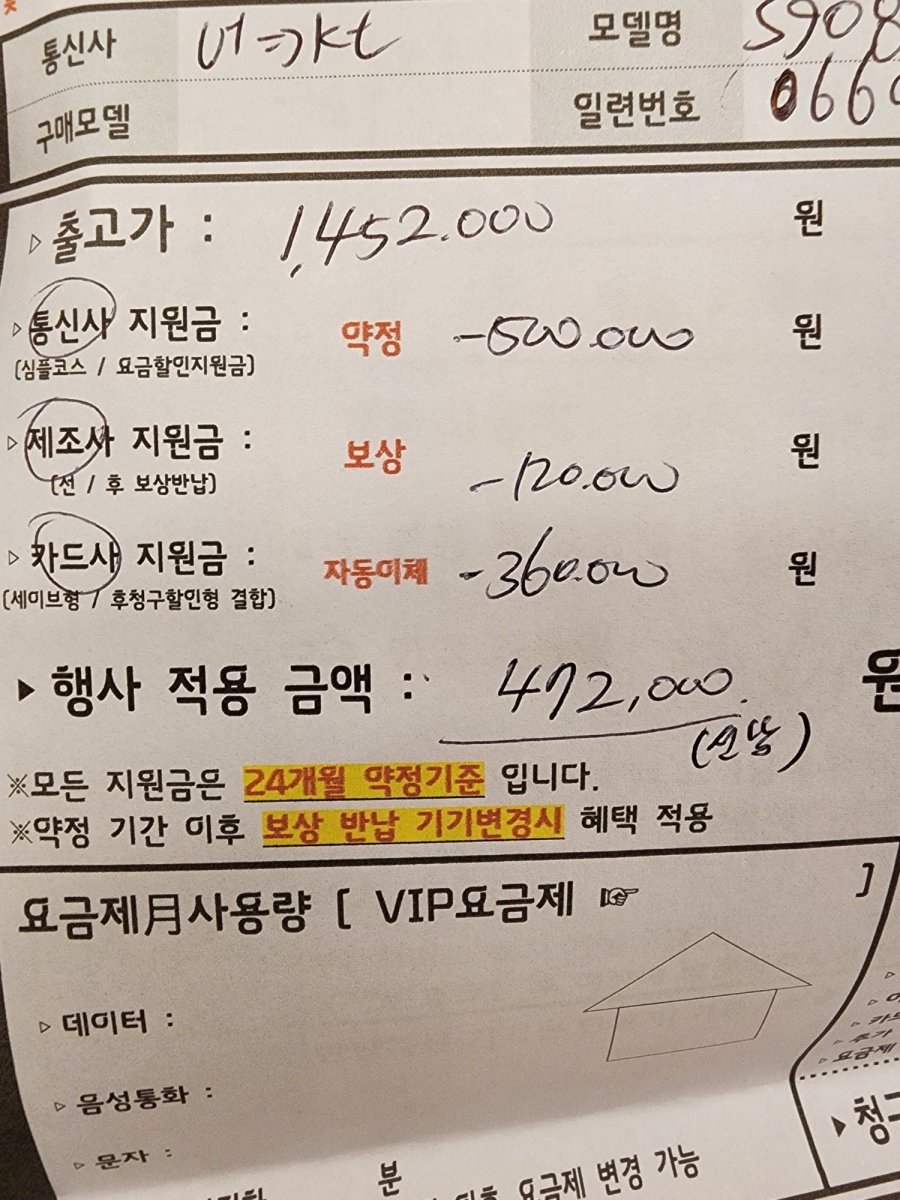 통신사 U+ => kt 모델명 S908
구매모델 일련번호 0660
▷ 출고가 : 1,452.000 원
▷ 통신사 지원금 : 약정 -500.000 원
(심플코스 / 요금할인지원금)
▷ 제조사 지원금 : 보상 -120.000 원
(선 / 후 보상반납)
▷ 카드사 지원금 : 자동이체 -360.000 원
(세이브형 / 후청구할인형 결합)
▶ 행사 적용 금액 : 472,000 원
(선납)
※모든 지원금은 24개월 약정기준 입니다.
※약정 기간 이후 보상 반납 기기변경시 혜택 적용
요금제月사용량 [ VIP요금제 ☞ ]
▷ 데이터 :
▷ 음성통화 :
▷ 문자 :
분
요금제 변경 가능
▷ 카드
▷ 추가
▷ 요금제
▶ 청구